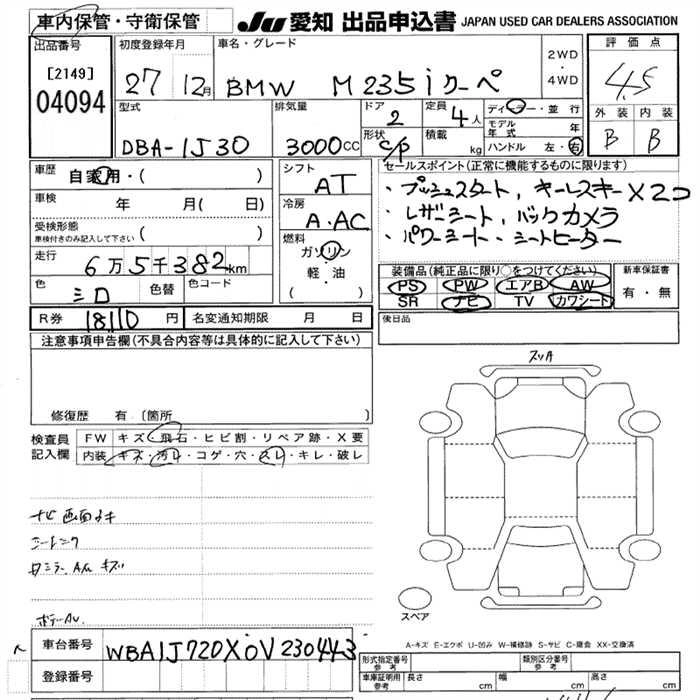 車内保管・守衛保管
JU 愛知 出品申込書 JAPAN USED CAR DEALERS ASSOCIATION
出品番号
[2149]
04094
初度登録年月
27 12月
車名・グレード
BMW M235iクーペ
2WD
・
4WD
評価点
4.5
外装 内装
B B
型式
DBA-1J30
排気量
3000CC
ドア
2
形状
C/P
定員
4人
積載
kg
ディーラー・並行
モデル年式 年
ハンドル 左・右
車歴
自家用・( )
車検 年 月( 日)
受検形態
車検付きのみ記入して下さい ( )
走行
6万5千382km
色
シロ
色替
色コード
シフト
AT
冷房
A・AC
燃料
ガソリン
軽・油
( )
セールスポイント(正常に機能するものに限ります)
・プッシュスタート, キーレスキー×2コ
・レザーシート, バックカメラ
・パワーシート・シートヒーター
装備品(純正品に限り○をつけてください)
PS PW エアB AW
SR ナビ TV カワシート
新車保証書
有・無
R券 18110円 名変通知期限 月 日
後日品
注意事項申告欄(不具合内容等は具体的に記入して下さい)
修復歴 有 [箇所 ]
検査員記入欄
FW キズ・飛石・ヒビ割・リペア跡・X要
内装 キズ・汚レ・コゲ・穴・スレ・キレ・破レ
スリA
ナビ画面キ
スペア
A-キズ E-エクボ U-凹み W-補修跡 S-サビ C-腐食 XX-交換済
車台番号
WBA1J720X0V230443
登録番号
形式指定番号
参考
類別区分番号
参考
車庫証明用
参考
長さ cm 幅 cm 高さ cm